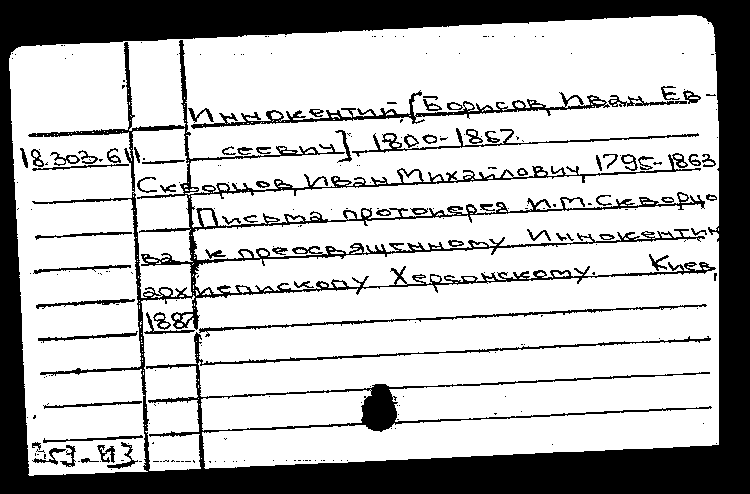 Иннокентий, [Борисов, Иван Ев-
18.303.611. сеевич], 1800-1857.
Скворцов, Иван Михайлович, 1795-1863
Письма протоиерея И.М.Скворцо
ва к преосвященному Иннокентию
архиепископу Херсонскому. Киев,
1887
353-ИЗ